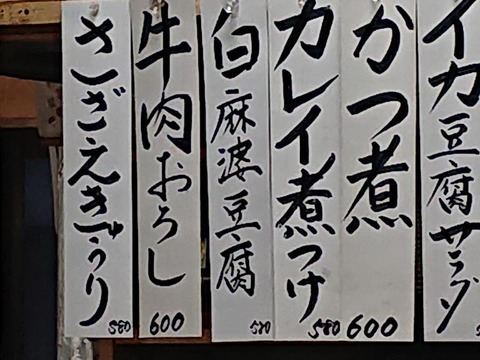 イカ豆腐サラダ
かつ煮
600
カレイ煮つけ
580
白麻婆豆腐
牛肉おろし
600
さざえきゅうり
580